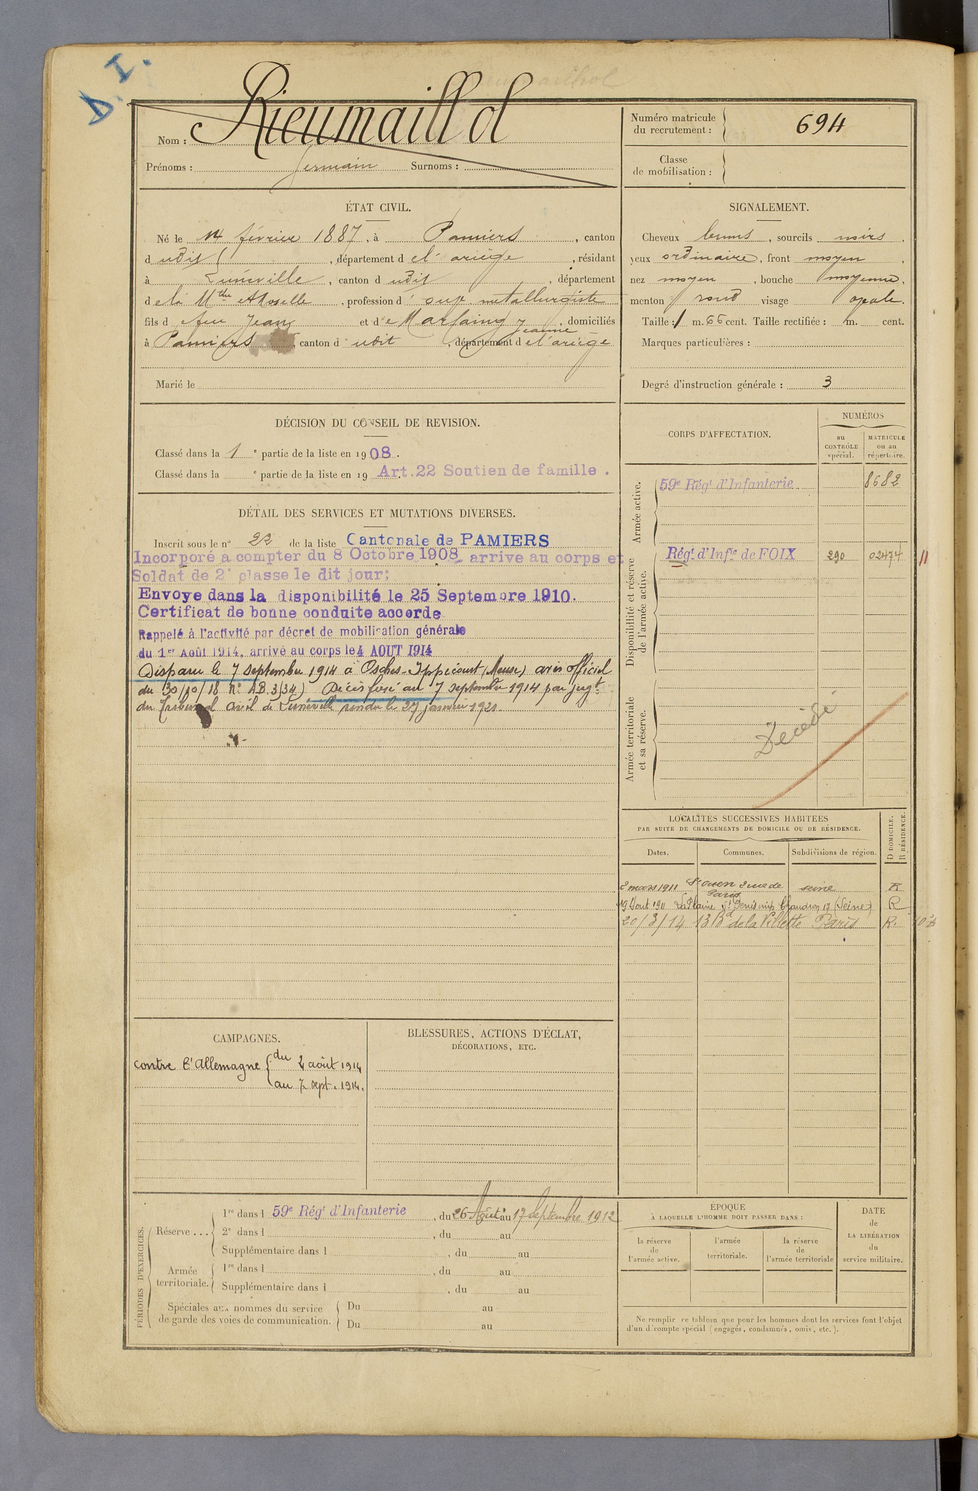 D. I.
Nom : Rieumaillol
Prénoms : Germain Surnoms :
Numéro matricule du recrutement : 694
Classe de mobilisation :
ÉTAT CIVIL.
Né le février 1887, à Pamiers, canton
d udit, département d el'ariège, résidant
à Lunéville, canton d udit, département
d e la Mthe et Moselle, profession d' ouv metallurgiste
fils d e feu Jean et d'e Marfaing Jeanne, domiciliés
à Pamiers, canton d udit, département d el'ariège
Marié le
SIGNALEMENT.
Cheveux bruns, sourcils noirs,
yeux ordinaire, front moyen,
nez moyen, bouche moyenne,
menton rond visage ovale.
Taille : 1 m. 66 cent. Taille rectifiée : m. cent.
Marques particulières :
Degré d'instruction générale : 3
DÉCISION DU CONSEIL DE REVISION.
Classé dans la 1 e partie de la liste en 1908.
Classé dans la e partie de la liste en 19 Art. 22 Soutien de famille.
DÉTAIL DES SERVICES ET MUTATIONS DIVERSES.
Inscrit sous le n° 22 de la liste Cantonale de PAMIERS
Incorporé à compter du 8 Octobre 1908, arrive au corps et
Soldat de 2e classe le dit jour;
Envoye dans la disponibilité le 25 Septembre 1910.
Certificat de bonne conduite accorde
Rappelé à l'activité par décret de mobilisation générale
du 1er Août 1914, arrivé au corps le 4 AOUT 1914
Disparu le 7 septembre 1914 à Osches-Ippécourt (Meuse) avis officiel
du 30/10/18 N° AD. 3134) Décès fixé au 7 septembre 1914 par jugt
du Tribunal civil de Lunéville rendu le 27 janvier 1921.
CORPS D'AFFECTATION.
NUMÉROS
au CONTRÔLE spécial.
MATRICULE ou au répertoire.
Armée active.
59e Régt d'Infanterie 8682
Disponibilité et réserve de l'armée active.
Régt d'Infie de FOIX 290 02474
11
Armée territoriale et sa réserve.
Décédé
LOCALITÉS SUCCESSIVES HABITÉES
PAR SUITE DE CHANGEMENTS DE DOMICILE OU DE RÉSIDENCE.
Dates. Communes. Subdivisions de région. D DOMICILE. R RÉSIDENCE.
2 mars 1911 St ouen rue de Paris seine R
19 Aout 1911 La Plaine St Denis (Seine) R
20/3/14 13 Bd de la Villette Paris R.
CAMPAGNES.
contre l'Allemagne du 4 août 1914
au 7 sept. 1914.
BLESSURES, ACTIONS D'ÉCLAT,
DÉCORATIONS, ETC.
PÉRIODES D'EXERCICES.
Réserve ...
1re dans l 59e Régt d'Infanterie, du 26 Août au 17 Septembre 1912
2e dans l , du au
Supplémentaire dans l , du au
Armée territoriale.
1re dans l , du au
Supplémentaire dans l , du au
Spéciales aux hommes du service de garde des voies de communication.
Du au
Du au
ÉPOQUE
À LAQUELLE L'HOMME DOIT PASSER DANS :
la réserve de l'armée active.
l'armée territoriale.
la réserve de l'armée territoriale
DATE de LA LIBÉRATION du service militaire.
Ne remplir ce tableau que pour les hommes dont les services font l'objet
d'un décompte spécial (engagés, condamnés, omis, etc.).